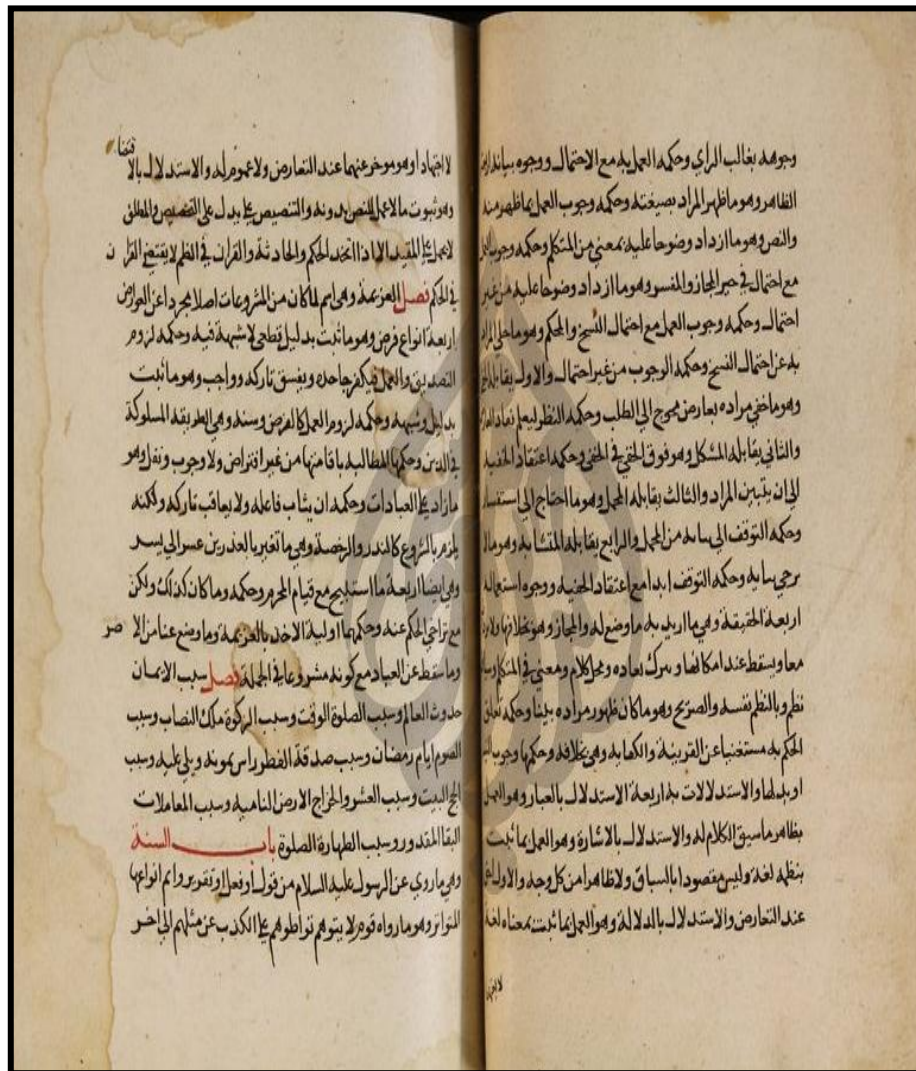 وجوهه بغالب الراي وحكمه العمل به مع الاحتمال ووجوه بيانه اربعة
الظاهر وهو ما ظهر المراد بصيغته وحكمه وجوب العمل بما ظهر منه
والنص وهو ما ازداد وضوحا عليه بمعني من المتكلم وحكمه وجوب العمل
مع احتمال في حيز المجاز والمفسر وهو ما ازداد وضوحا عليه من غير
احتمال وحكمه وجوب العمل مع احتمال النسخ والمحكم وهو ما خلي المراد
به عن احتمال النسخ وحكمه الوجوب من غير احتمال والاول يقابله الخفي
وهو ما خفي مراده بعارض محوج الي الطلب وحكمه النظر ليعلم
والثاني يقابله المشكل وهو فوق الخفي في الخفي وحكمه اعتقاد الحقيه
الي ان يتبين المراد والثالث يقابله المجمل وهو ما احتاج الي استفسار
وحكمه التوقف الي بيانه من المجمل والرابع يقابله المتشابه وهو ما لا
يرجي بيانه وحكمه التوقف ابدا مع اعتقاد الحقيه ووجوه استعماله
اربعة الحقيقة وهي ما اريد به ما وضع له والمجاز وهو بخلافها ولا يراد
معا ويسقط عند امكانها وبترك بعاده ومحل كلام ومعني في المتكلم وسياق
نظم وبالنظم نفسه والصريح وهو ما كان ظهور مراده بينا وحكمه تعلق
الحكم به مستغنيا عن القرينة والكنايه وهي بخلافه وحكمها وجوب
او بدلها والاستدلالات به اربعة الاستدلال بالعبار وهو العمل
بظاهر ما سيق الكلام له والاستدلال بالاشارة وهو العمل بما ثبت
بنظمه لغة وليس مقصودا بالسباق ولا ظاهرا من كل وجه والاول احق
عند التعارض والاستدلال بالدلالة وهو العمل بما ثبت بمعناه لغة
لا اجتهادا
لا اجتهادا وهو موخر عنهما عند التعارض ولا عموم له والاستدلال بالا قتضا
وهو ثبوت ما لا عمل للنص بدونه والتنصيص علي يدل علي التخصيص والمطلق
لا يحمل علي المقيد الا اذا اتحد الحكم والحادثة والقران في النظم لا يقتضي القرا ن
في الحكم فصل العزيمة وهي اسم لما كان من المشروعات اصلا مجردا عن العوارض
اربعة انواع فرض وهو ما ثبت بدليل قطعي لا شبهة فيه وحكمه لزوم
التصديق والعمل فيكفر جاحده ويفسق تاركه وواجب وهو ما ثبت
بدليل وشبهه وحكمه لزوم العمل كالفرض وسنه وهي الطريقه المسلوكة
في الدين وحكمها المطالبه باقامتها من غير افتراض ولا وجوب ونفل وهو
ما زاد علي العبادات وحكمه ان يثاب فاعله ولا يعاقب تاركه ولكنه
يلزم بالشروع كالنذر والرخصة وهي ما تغير بالعذر من عسر الي يسر
وهي ايضا اربعة ما استبيح مع قيام المحرم وحكمه وما كان كذلك ولكن
مع تراخي الحكم عنه وحكمهما اولية الاخذ بالعزيمة وما وضع عنا من الا صر
وما سقط عن العباد مع كونه مشروعا في الجملة فصل سبب الايمان
حدوث العالم وسبب الصلوة الوقت وسبب الزكوة ملك النصاب وسبب
الصوم ايام رمضان وسبب صدقة الفطر راس يمونه ويلي عليه وسبب
الحج البيت وسبب العشر والخراج الارض الناميه وسبب المعاملات
البقا المقدور وسبب الطهارة الصلوة باب السنة
وهي ما روي عن الرسول عليه السلام من قول او فعل او تقرير وانواعها
المتواتر وهو ما رواه قوم لا يتوهم تواطوهم علي الكذب عن مثلهم الي اخر